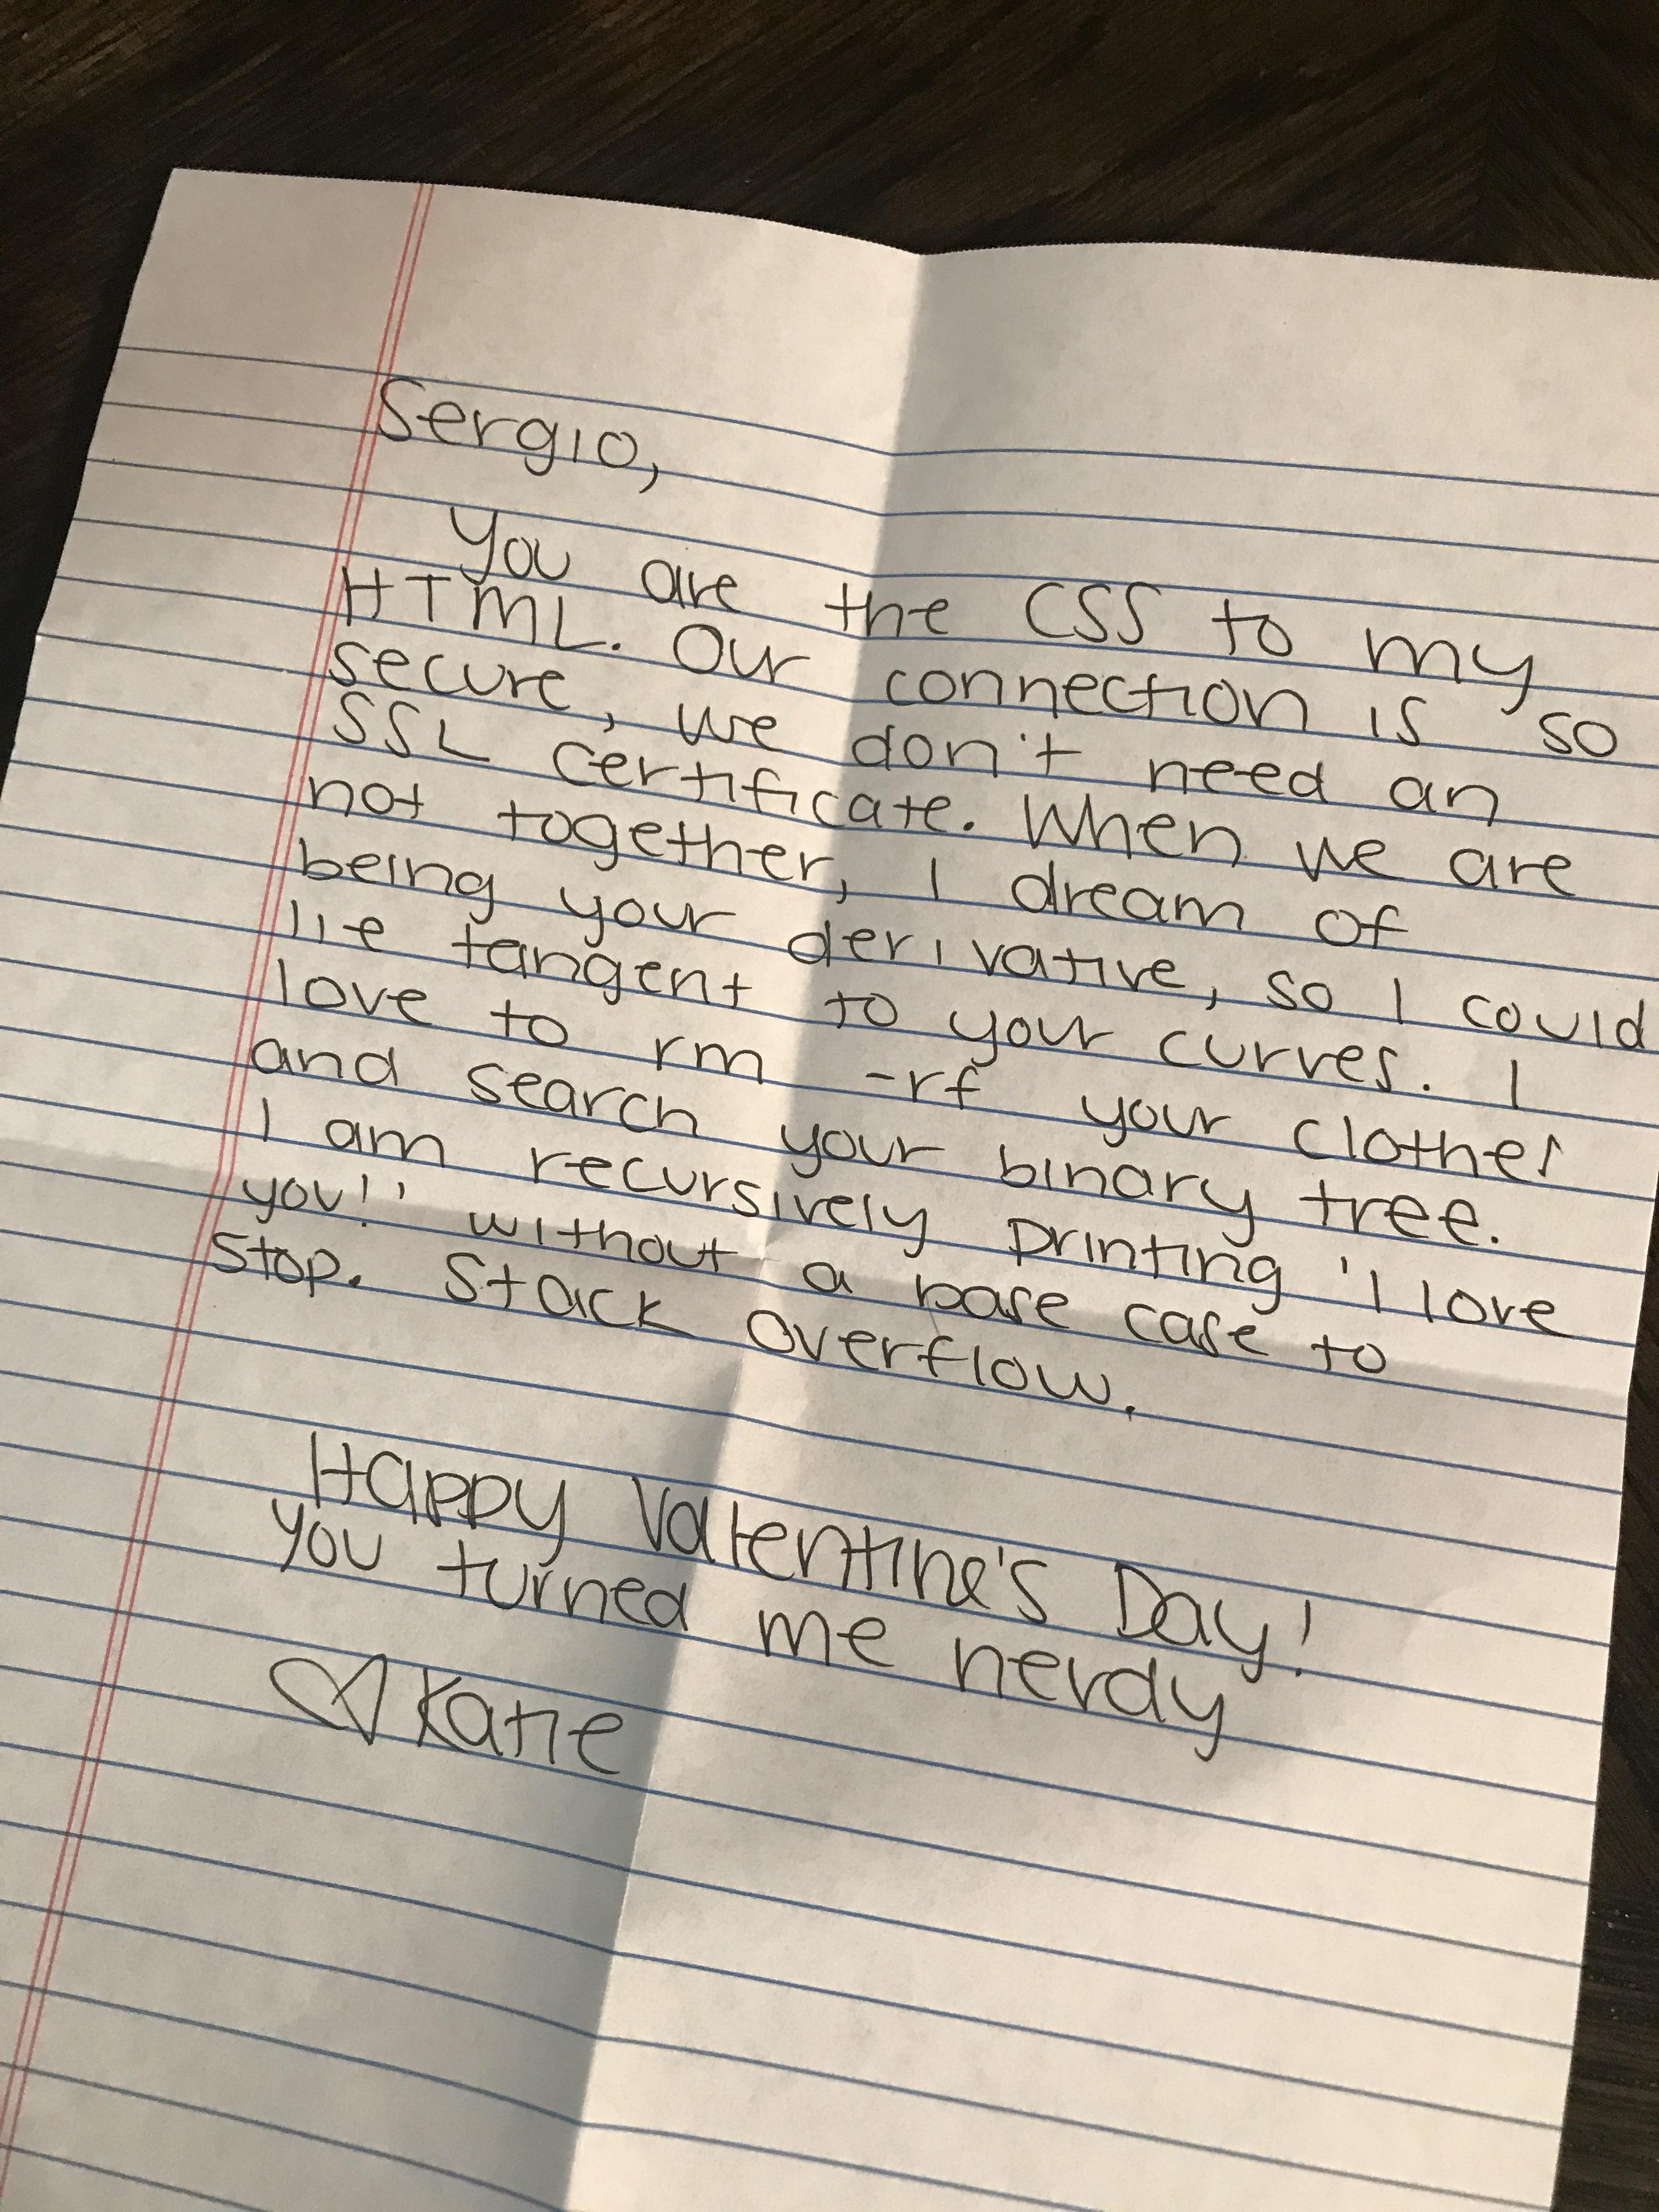 Sergio,
You are the CSS to my
HTML. Our connection is so
secure, we don't need an
SSL certificate. When we are
not together, I dream of
being your derivative, so I could
lie tangent to your curves. I
love to rm -rf your clothes
and search your binary tree.
I am recursively printing 'I love
you!' without a base case to
stop. Stack Overflow.
Happy Valentine's Day!
You turned me nerdy
♡ Katie